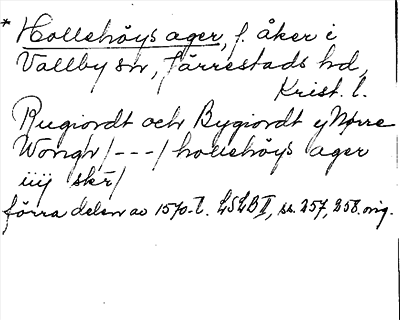 * Hollehöys ager, f. åker i
Vallby sn, Järrestads hd,
Krist. l.
Rugiordt och Bygiordt y Nørre
Wongh /---/ hollehöys ager
iiij skr/
förra delen av 1570-t. LSLB II, ss. 257, 258. orig.